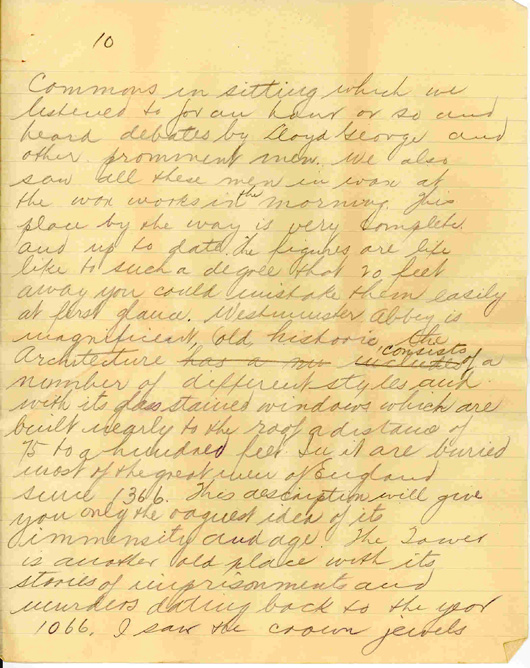 10
Commons in sitting which we
listened to for an hour or so and
heard debates by Lloyd George and
other prominent men. We also
saw all these men in wax at
the wax works in the morning. This
place by the way is very complete
and up to date. The figures are life
like to such a degree that 20 feet
away you could mistake them easily
at first glance. Westminster Abbey is
magnificent, old historic, the
Architecture has a consists of a
number of different styles and
with its glass stained windows which are
built nearly to the roof a distance of
75 to a hundred feet. In it are buried
most of the great men of England
since 1366. This description will give
you only the vaguest idea of its
immensity and age. The Tower
is another old place with its
stories of imprisonments and
murders dating back to the year
1066. I saw the crown jewels